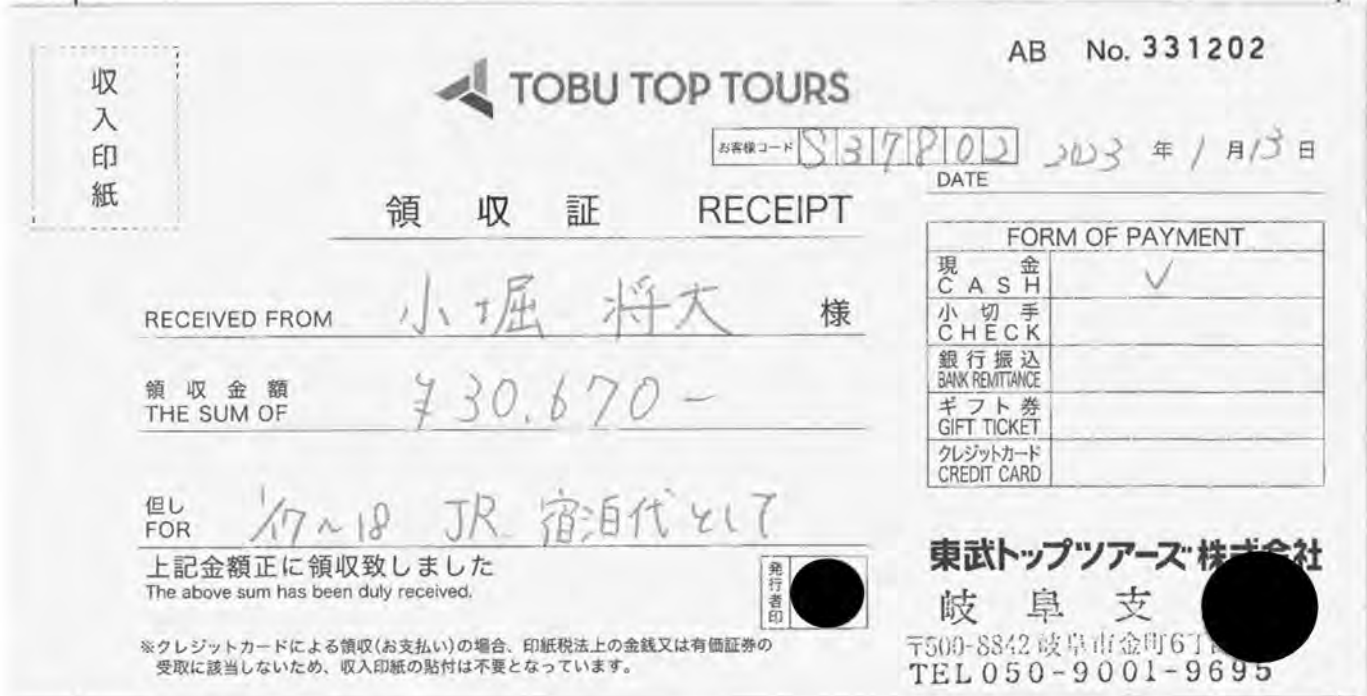 収入印紙
AB No. 331202
TOBU TOP TOURS
お客様コード S37802 2023 年 1 月 13 日
DATE
領 収 証 RECEIPT
RECEIVED FROM 小堀 将大 様
領 収 金 額
THE SUM OF ¥30,670-
但し
FOR 1/17~18 JR 宿泊代として
上記金額正に領収致しました
The above sum has been duly received.
発行者印
※クレジットカードによる領収(お支払い)の場合、印紙税法上の金銭又は有価証券の
受取に該当しないため、収入印紙の貼付は不要となっています。
FORM OF PAYMENT
現 金
CASH ✓
小 切 手
CHECK
銀 行 振 込
BANK REMITTANCE
ギ フ ト 券
GIFT TICKET
クレジットカード
CREDIT CARD
東武トップツアーズ株式会社
岐 阜 支
〒500-8842 岐阜市金町6丁
TEL 050-9001-9695